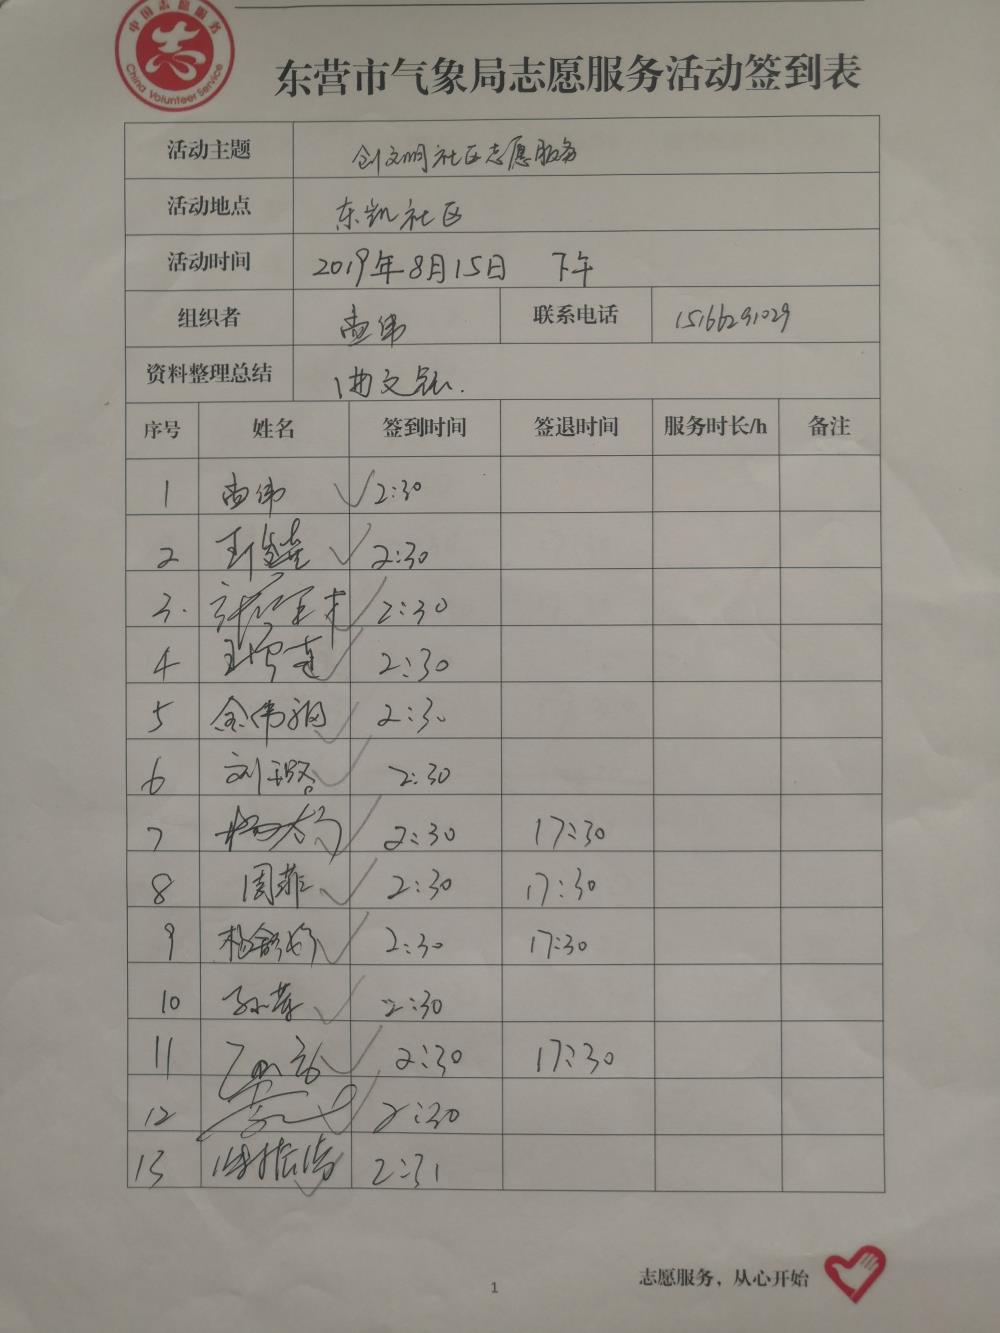 中国志愿服务
志
China Volunteer Service
东营市气象局志愿服务活动签到表
活动主题 创文明社区志愿服务
活动地点 东凯社区
活动时间 2019年8月15日 下午
组织者 尚伟 联系电话 15166291029
资料整理总结
序号 姓名 签到时间 签退时间 服务时长/h 备注
1 尚伟 2:30
2 2:30
3. 2:30
4 2:30
5 2:30
6 刘璐 2:30
7 2:30 17:30
8 周菲 2:30 17:30
9 2:30 17:30
10 2:30
11 2:30 17:30
12 2:30
13 2:31
志愿服务，从心开始
1